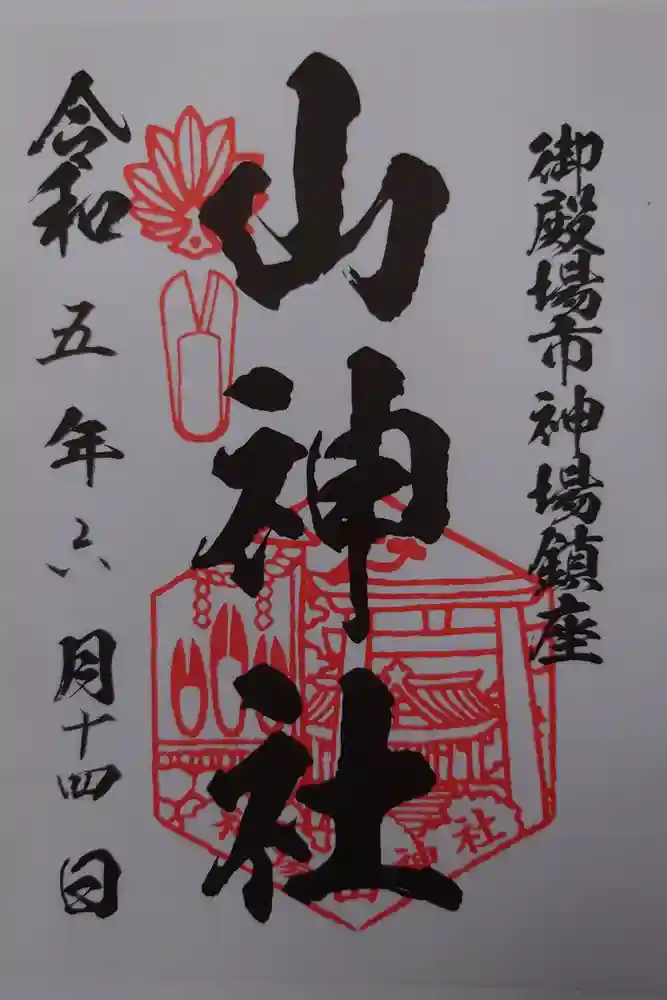 御殿場市神場鎮座
山神社
令和五年六月十四日
神場山神社